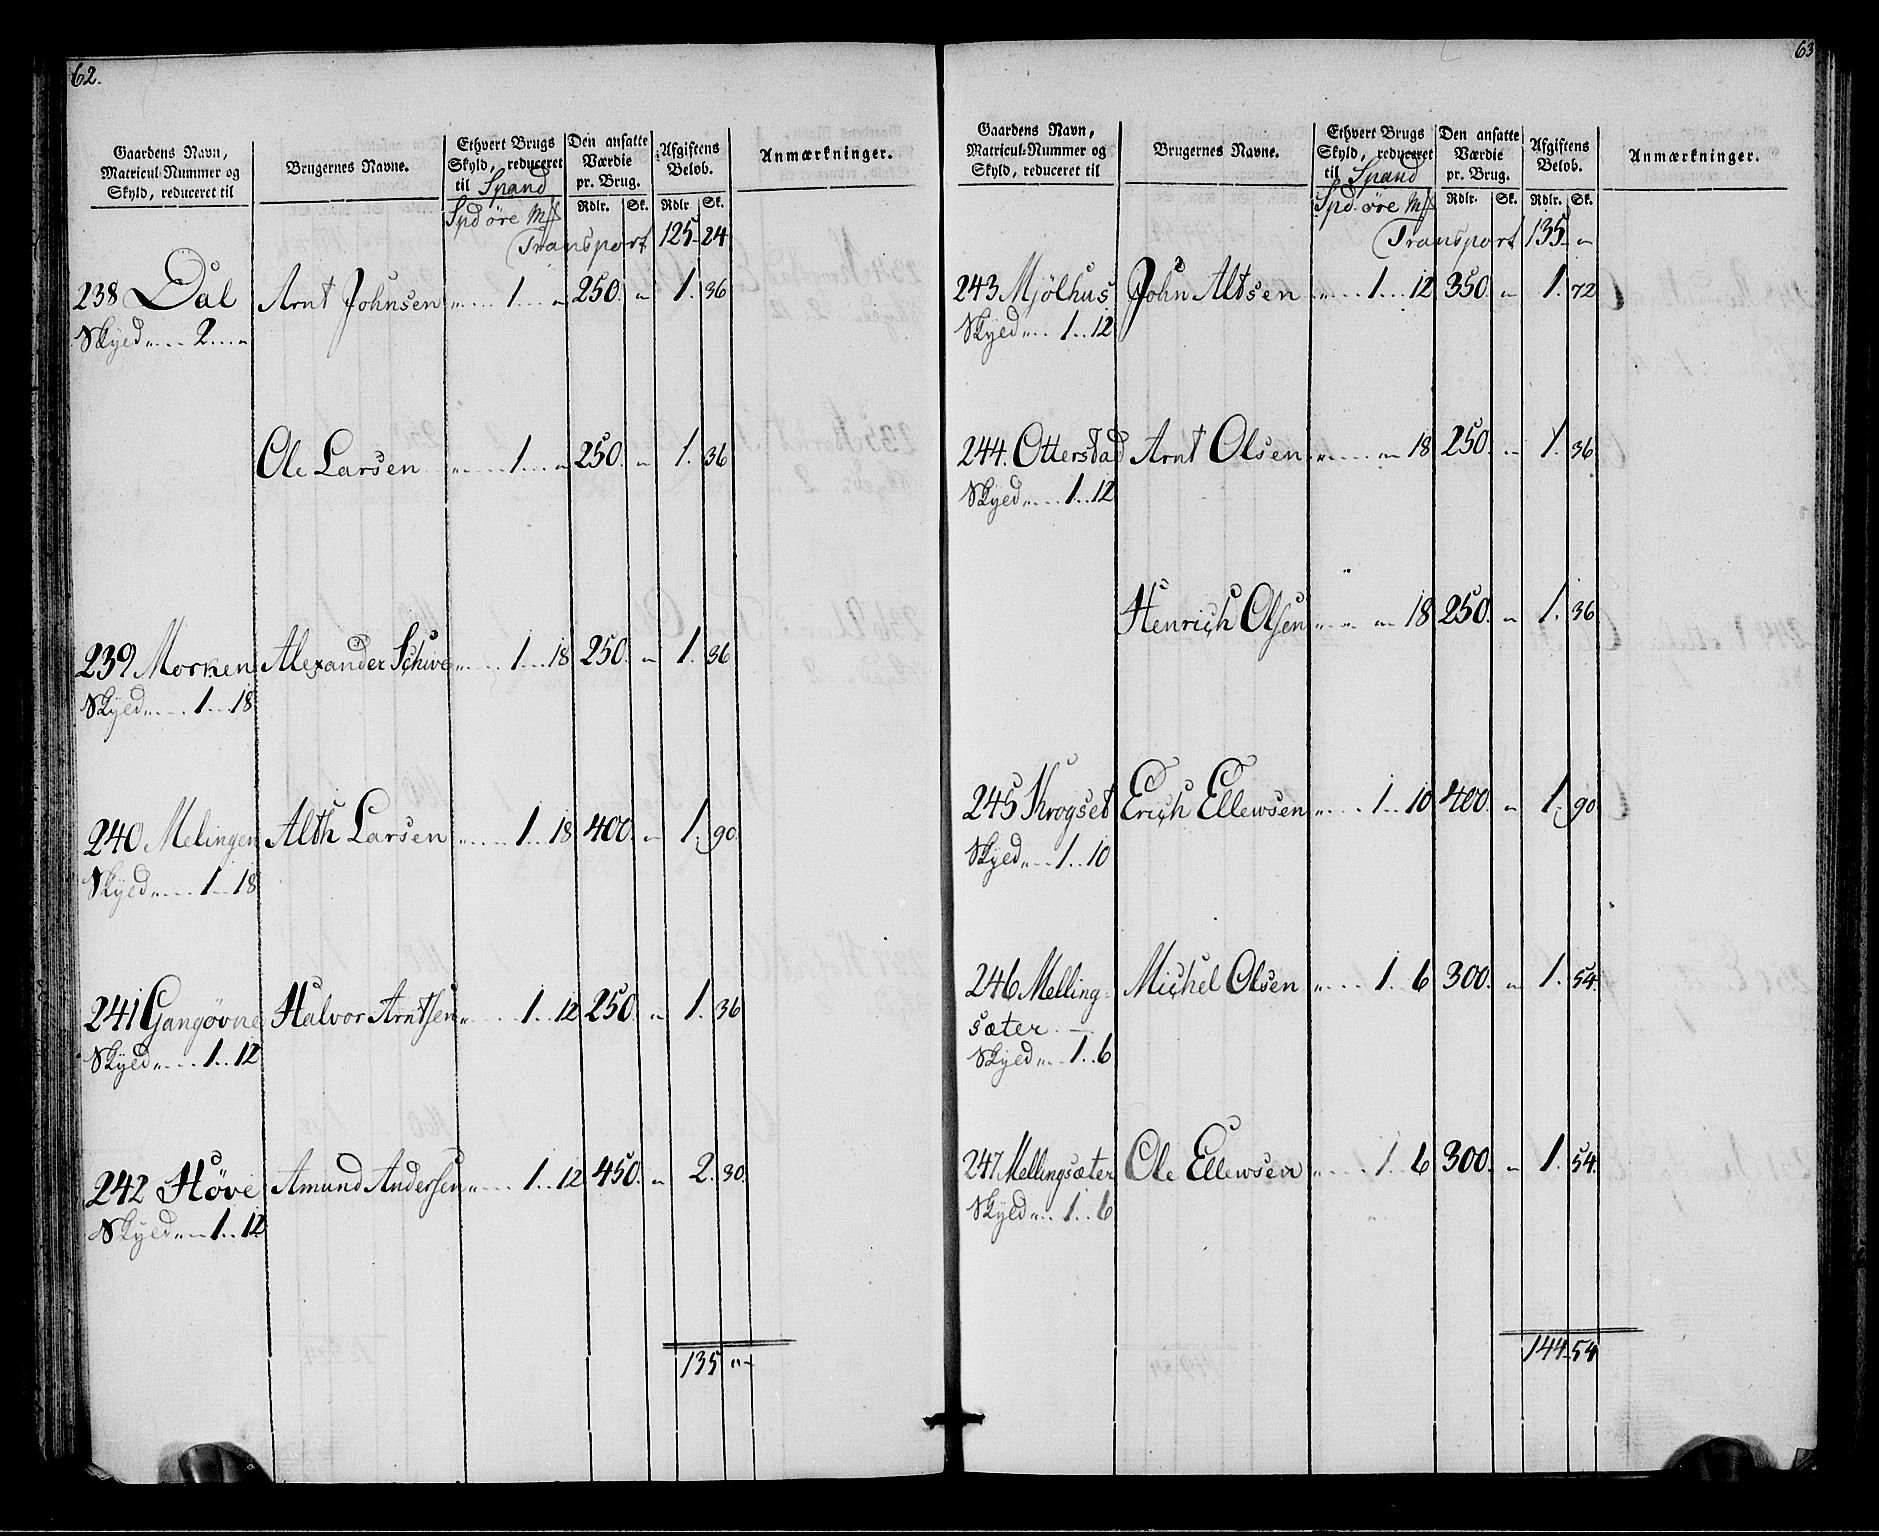 62.
Gaardens Navn,
Matricul-Nummer og
Skyld, reduceret til
Brugernes Navne.
Ethvert Brugs
Skyld, reduceret
til Spand
Den ansatte
Værdie
pr. Brug.
Afgiftens
Beløb.
Anmærkninger.
Rdlr. Sk. Rdlr Sk.
Spd öre Mk
Transport 125 - 24
238 Dal Arnt Johnsen „ .... 1 ... „ 250. „ 1. 36
Skyld „ .... 2 .... „
Ole Larsen „ .... 1 ... „ 250. „ 1. 36
239 Morken Alexander Schive „ .... 1 ... 18 250. „ 1. 36
Skyld „ .... 1 .. 18
240 Melingen Alth Larsen „ .... 1 .. 18 400. „ 1. 90
Skyld „ .... 1 .. 18
241 Gangövne Halvor Arntsen „ .... 1 .. 12 250. „ 1. 36
Skyld „ .... 1 .. 12
242 Höve Amund Andersen „ .... 1 .. 12 450. „ 2. 30.
Skyld „ .. 1 .. 12
135 „ -
63
Gaardens Navn,
Matricul-Nummer og
Skyld, reduceret til
Brugernes Navne.
Ethvert Brugs
Skyld, reduceret
til Spand
Den ansatte
Værdie
pr. Brug.
Afgiftens
Beløb.
Anmærkninger.
Rdlr. Sk. Rdlr. Sk.
Spd. öre Mk
Transport 135 - „
243 Mjölhus John Altsen „ .... 1 ... 12 350. „ 1. 72
Skyld „ ... 1 .. 12
244. Otterstad Arnt Olsen „ .... „ 18 250. „ 1. 36
Skyld „ .... 1 .. 12
Henrich Olsen „ .. „ .. „ 18 250. „ 1. 36
245 Krogset Erich Ellewsen „ .... 1 .. 10 400. „ 1. 90
Skyld „ ... 1 .. 10
246 Melling=
sæter Michel Olsen „ .... 1. 6 300. „ 1. 54.
Skyld „ ... 1 .. 6
247. Mellingsæter Ole Ellewsen „ .... 1. 6 300. „ 1. 54.
Skyld „ ... 1 .. 6
144 - 54